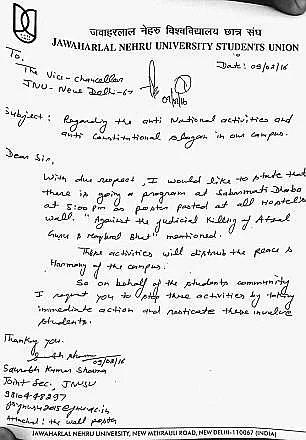 जवाहरलाल नेहरू विश्वविद्यालय छात्र संघ
JAWAHARLAL NEHRU UNIVERSITY STUDENTS UNION
To,
Date: 09/02/16
The Vice-chancellor
JNU- New Delhi-67
09/02/16
Subject: Regarding the anti National activities and
anti Constitutional slogan in our campus.
Dear Sir,
With due respect, I would like to state that
there is going a program at Sabarmati Dhaba
at 5:00 pm as poster pasted at all Hostels
wall. "Against the judicial Killing of Afzal
Guru & Maqbool Bhat" mentioned.
These activities will distrub the peace &
Harmony of the campus.
So on behalf of the students community
I request you to stop these activities by taking
immediate action and rusticate these involve
students.
Thanking you.
09/02/16
Saurabh Kumar Sharma
Joint Sec. JNUSU
Attached: the wall poster
JAWAHARLAL NEHRU UNIVERSITY, NEW MEHRAULI ROAD, NEW DELHI-110067 (INDIA)